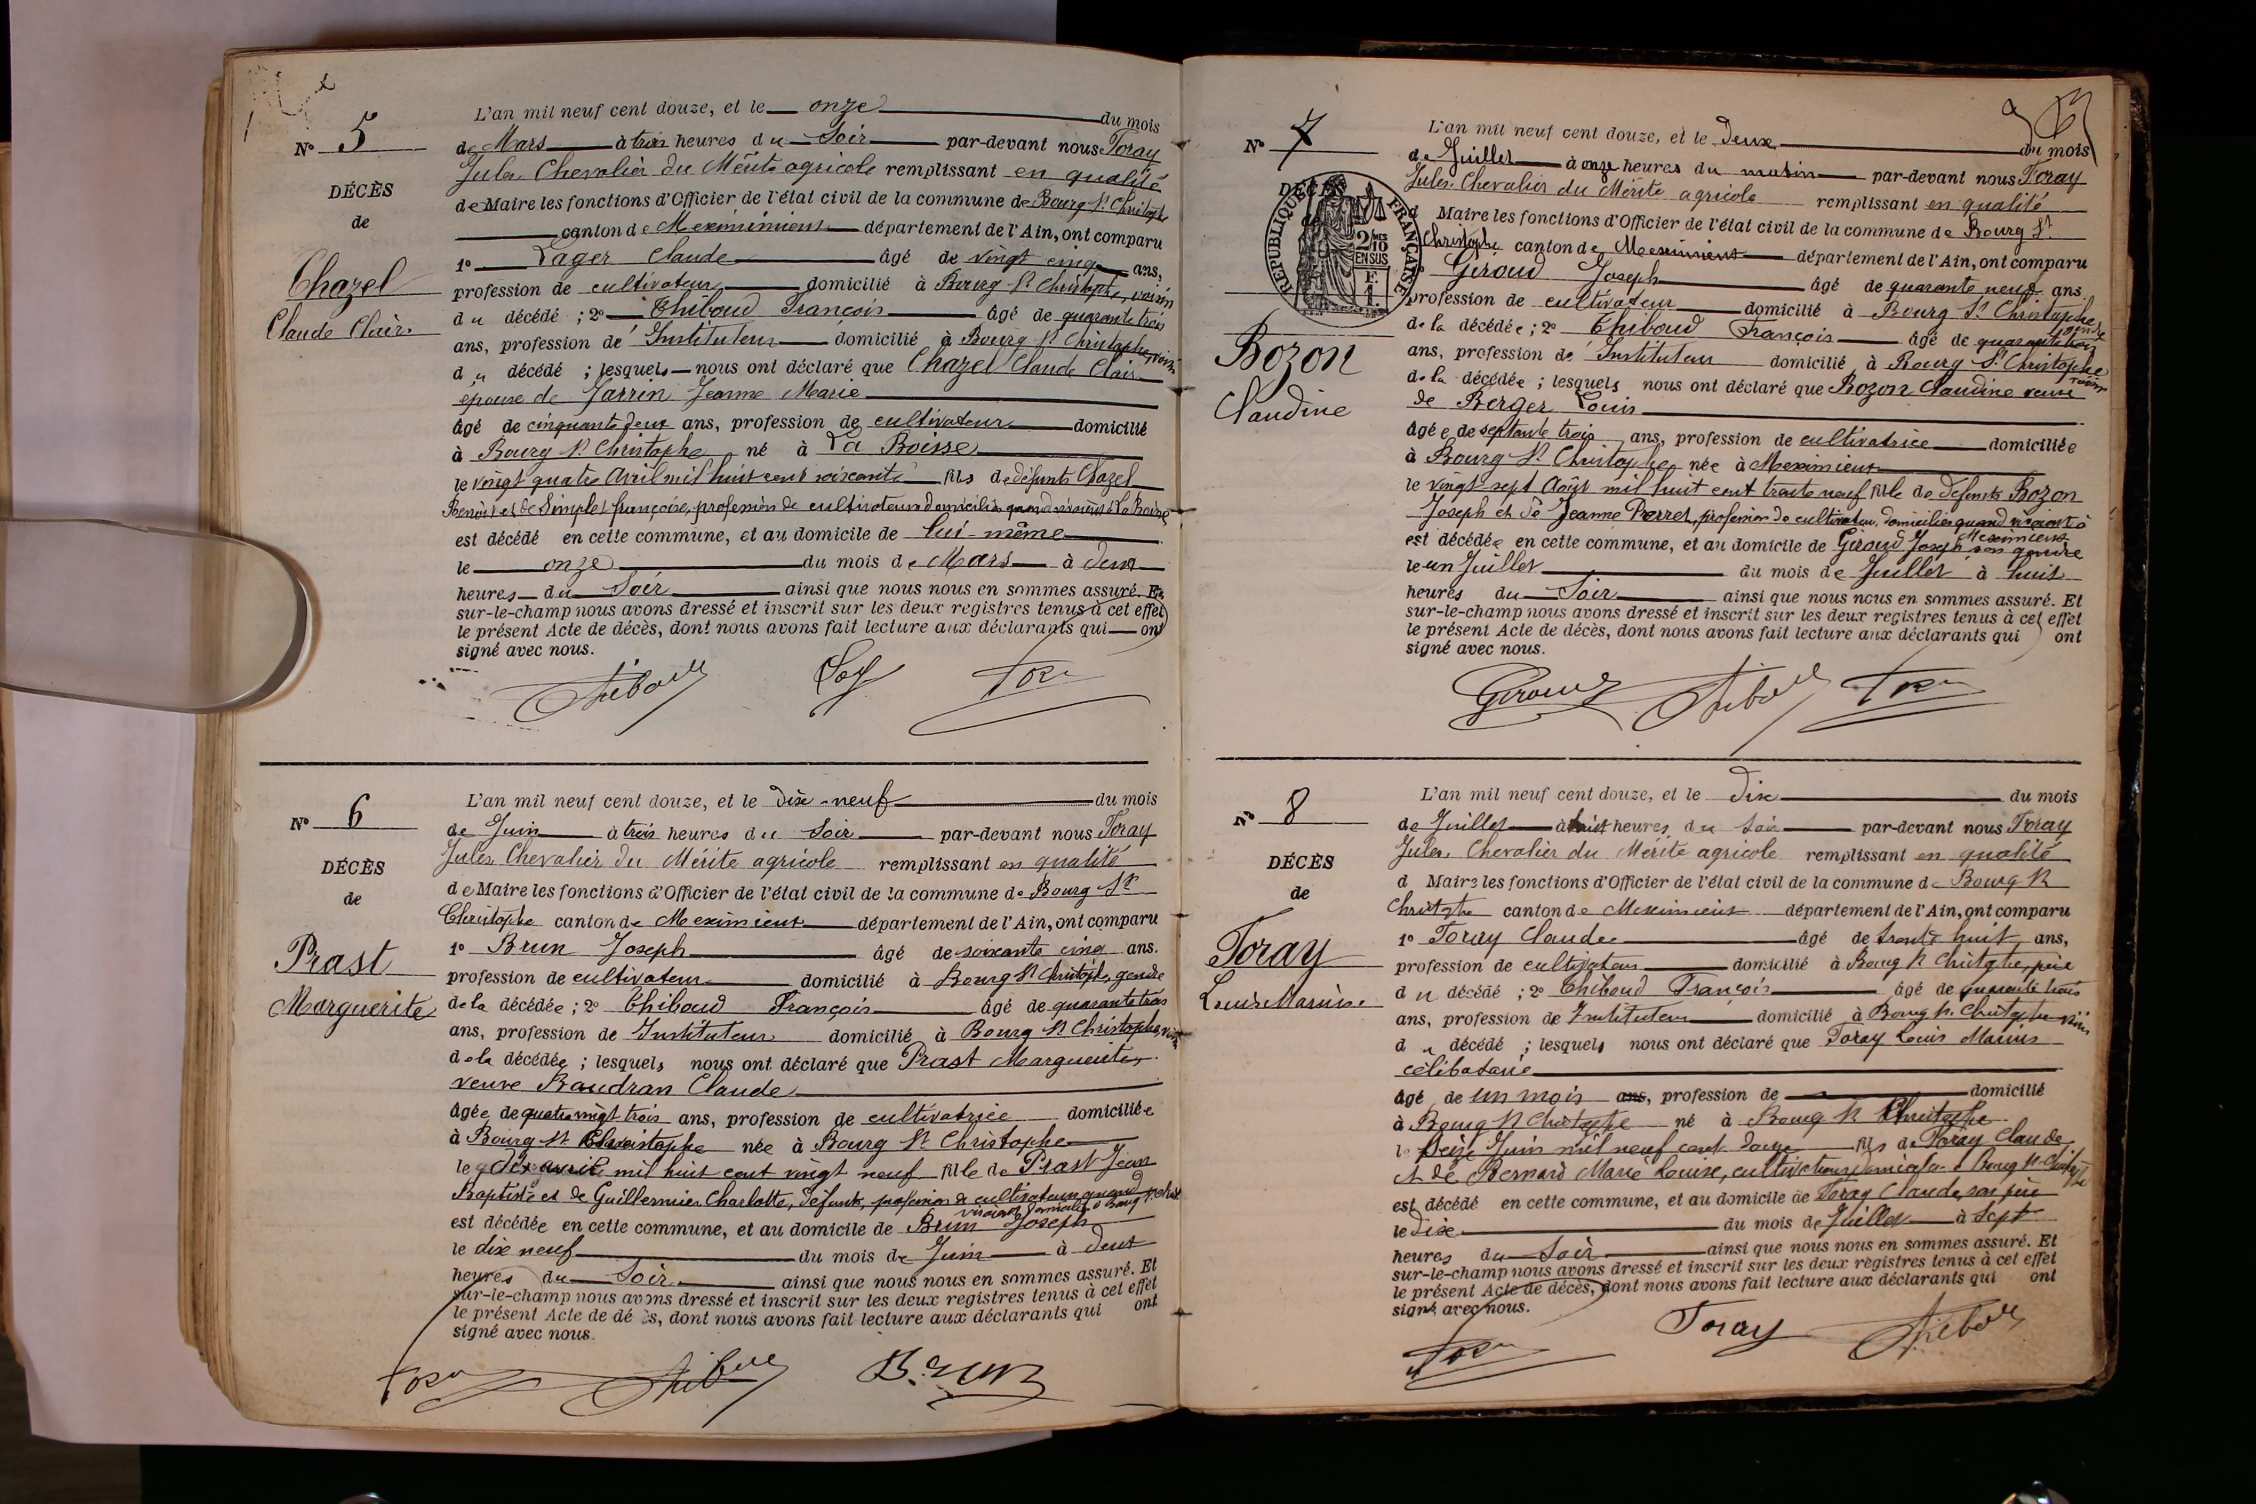 N° 5
DÉCÈS
de
Chazel
Claude Clair
L'an mil neuf cent douze, et le onze du mois
de Mars à trois heures du Soir par-devant nous Foray
Jules Chevalier du Mérite agricole remplissant en qualité
de Maire les fonctions d'Officier de l'état civil de la commune de Bourg St Christophe
canton de Meximieux département de l'Ain, ont comparu
1° Lager Claude âgé de vingt cinq ans,
profession de cultivateur domicilié à Bourg St Christophe, voisin
du décédé ; 2° Thiboud François âgé de quarante trois
ans, profession de Instituteur domicilié à Bourg St Christophe, voisin
du décédé ; lesquels nous ont déclaré que Chazel Claude Clair
epoux de Jarrin Jeanne Marie
âgé de cinquante deux ans, profession de cultivateur domicilié
à Bourg St Christophe né à La Boisse
le vingt quatre avril mil huit cent soixante fils de défunts Chazel
Benoit et de Simplet françoise, profession de cultivateurs domiciliés quand vivaient à La Boisse
est décédé en cette commune, et au domicile de lui-même
le onze du mois de Mars à deux
heures du Soir ainsi que nous nous en sommes assuré. Et
sur-le-champ nous avons dressé et inscrit sur les deux registres tenus à cet effet
le présent Acte de décès, dont nous avons fait lecture aux déclarants qui ont
signé avec nous.
Thiboud
N° 6
DÉCÈS
de
Prast
Marguerite
L'an mil neuf cent douze, et le dix-neuf du mois
de Juin à trois heures du Soir par-devant nous Foray
Jules Chevalier du Mérite agricole remplissant en qualité
de Maire les fonctions d'Officier de l'état civil de la commune de Bourg St
Christophe canton de Meximieux département de l'Ain, ont comparu
1° Brun Joseph âgé de soixante cinq ans.
profession de cultivateur domicilié à Bourg St Christophe, gendre
de la décédée ; 2° Thiboud François âgé de quarante trois
ans, profession de Instituteur domicilié à Bourg St Christophe, voisin
de la décédée ; lesquels nous ont déclaré que Prast Marguerite
veuve Baudran Claude
âgée de quatre vingt trois ans, profession de cultivatrice domiciliée
à Bourg St Christophe née à Bourg St Christophe
le dix avril mil huit cent vingt neuf fille de Prast Jean
Baptiste et de Guillermier Charlotte, défunts, profession de cultivateurs quand
vivaient domiciliés à Bourg St Christ
est décédée en cette commune, et au domicile de Brun Joseph
le dix neuf du mois de Juin à deux
heures du Soir ainsi que nous nous en sommes assuré. Et
sur-le-champ nous avons dressé et inscrit sur les deux registres tenus à cet effet
le présent Acte de décès, dont nous avons fait lecture aux déclarants qui ont
signé avec nous.
Thiboud Brun
N° 7
DÉCÈS
RÉPUBLIQUE FRANÇAISE
2/10 EN SUS
Bozon
Claudine
L'an mil neuf cent douze, et le Deux du mois
de Juillet à onze heures du matin par-devant nous Foray
Jules Chevalier du Mérite agricole remplissant en qualité
d Maire les fonctions d'Officier de l'état civil de la commune de Bourg St
Christophe canton de Meximieux département de l'Ain, ont comparu
Giroud Joseph âgé de quarante neuf ans.
profession de cultivateur domicilié à Bourg St Christophe
gendre
de la décédée ; 2° Thiboud François âgé de quarante trois
ans, profession de Instituteur domicilié à Bourg St Christophe
voisin
de la décédée ; lesquels nous ont déclaré que Bozon Claudine veuve
de Berger Louis
âgée de septante trois ans, profession de cultivatrice domiciliée
à Bourg St Christophe née à Meximieux
le vingt sept Août mil huit cent trente neuf fille de défunts Bozon
Joseph et de Jeanne Perret, profession de cultivateurs, domiciliés quand vivaient à
Meximieux
est décédée en cette commune, et au domicile de Giroud Joseph son gendre
le un Juillet du mois de Juillet à huit
heures du Soir ainsi que nous nous en sommes assuré. Et
sur-le-champ nous avons dressé et inscrit sur les deux registres tenus à cet effet
le présent Acte de décès, dont nous avons fait lecture aux déclarants qui ont
signé avec nous.
Giroud Thiboud
N° 8
DÉCÈS
de
Foray
Louis Marius
L'an mil neuf cent douze, et le Dix du mois
de Juillet à huit heures du Soir par-devant nous Foray
Jules, Chevalier du Mérite agricole remplissant en qualité
d Maire les fonctions d'Officier de l'état civil de la commune de Bourg St
Christophe canton de Meximieux département de l'Ain, ont comparu
1° Foray Claude âgé de trente huit ans,
profession de cultivateur domicilié à Bourg St Christophe, père
du décédé ; 2° Thiboud François âgé de quarante trois
ans, profession de Instituteur domicilié à Bourg St. Christophe voisin
du décédé ; lesquels nous ont déclaré que Foray Louis Marius
célibataire
âgé de un mois ans, profession de domicilié
à Bourg St Christophe né à Bourg St Christophe
le Seize Juin mil neuf cent douze fils de Foray Claude
et de Bernard Marie Louise, cultivateurs domiciliés à Bourg St Christophe
est décédé en cette commune, et au domicile de Foray Claude, son père
le dix du mois de Juillet à Sept
heures du Soir ainsi que nous nous en sommes assuré. Et
sur-le-champ nous avons dressé et inscrit sur les deux registres tenus à cet effet
le présent Acte de décès, dont nous avons fait lecture aux déclarants qui ont
signé avec nous.
Foray Thiboud